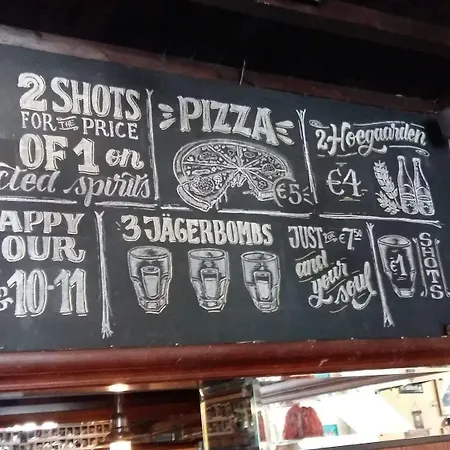 2 SHOTS
FOR THE PRICE
OF 1 on
cted spirits
PIZZA
€5
2 Hoegaarden
€4
APPY
OUR
10-11
3 JÄGERBOMBS
JUST FOR €7.50
and
your
soul
€1
SHOTS